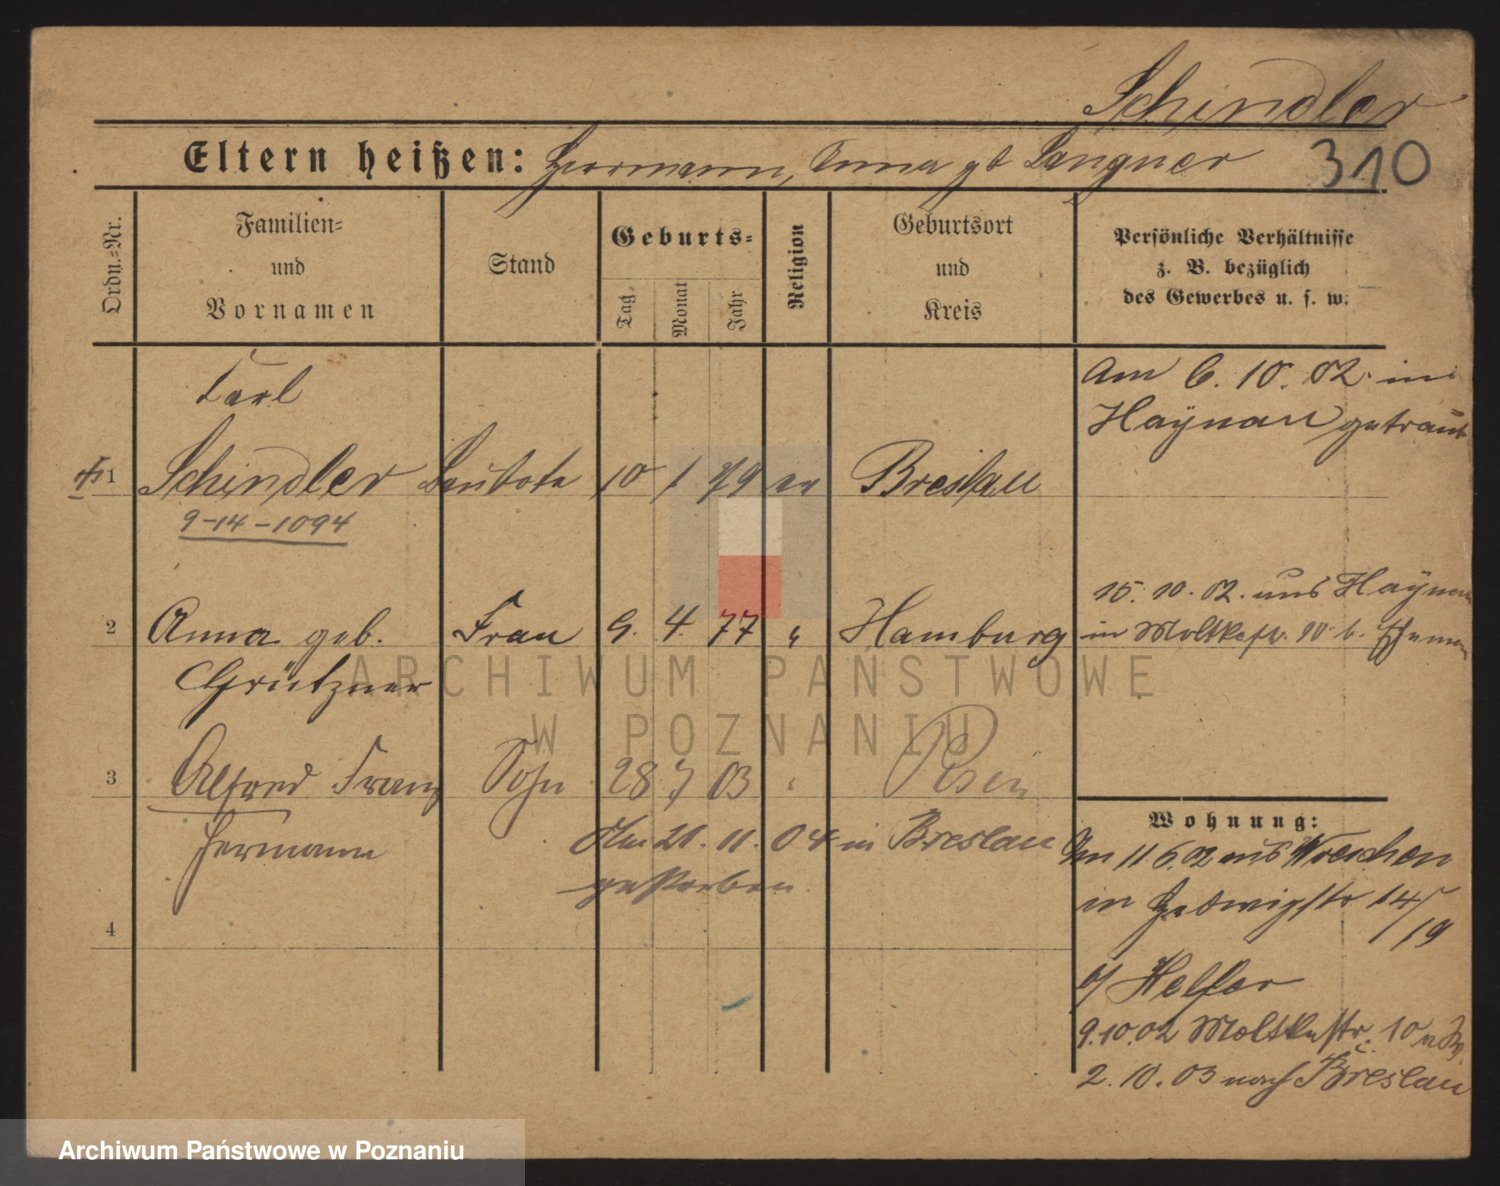 Schindler
Eltern heißen: Herrmann, Anna gb Langner 310
Ordn.-Nr.
Familien- und Vornamen
Stand
Geburts-
Tag
Monat
Jahr
Religion
Geburtsort und Kreis
Persönliche Verhältnisse
z. B. bezüglich
des Gewerbes u. s. w.
Karl
Am 6. 10. 02. in
Haynau getraut
1 Schindler 10 1 79 ev Breslau
9-14-1094
15. 10. 02. aus Haynau
2 Anna geb. Frau 9. 4. 77 " Hamburg
in Moltkestr. 10 b.
Grützner
3 Alfred Franz Sohn 28 7 03 " Posen
Hermann
Am 21. 11. 04 in Breslau
gestorben
4
Wohnung:
Am 11 6.02 aus Wreschen
in Hedwigstr 14/
19
b/ Helfer
9.10.02 Moltkestr. 10
2. 10. 03 nach Breslau
ARCHIWUM PAŃSTWOWE
W POZNANIU
Archiwum Państwowe w Poznaniu